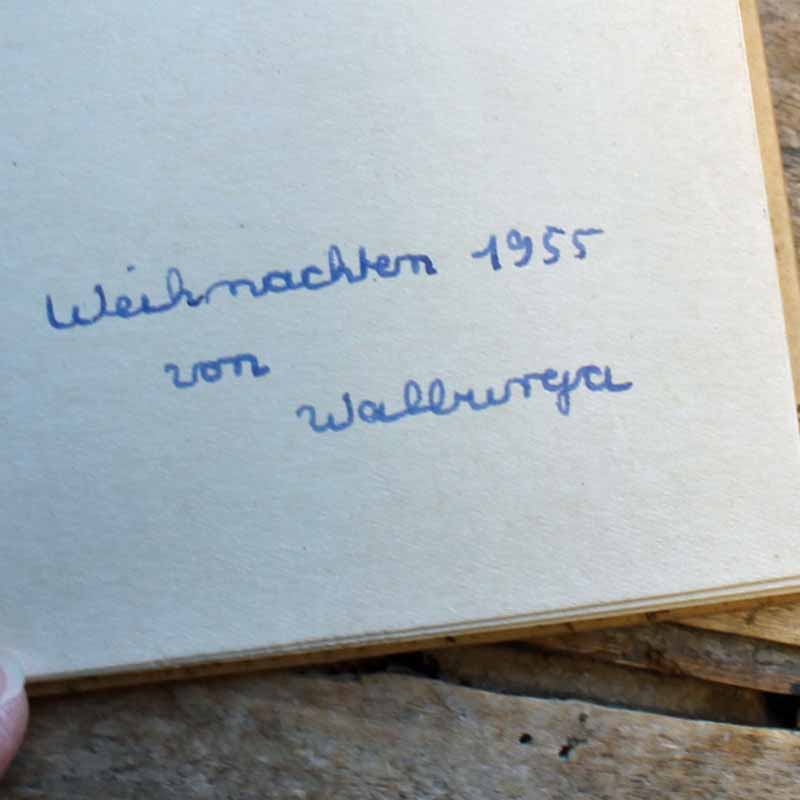 Weihnachten 1955
von
Walburga